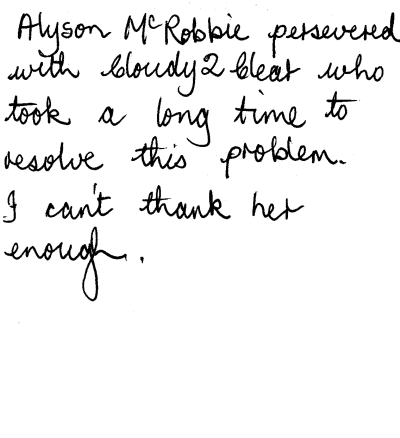 Alyson McRobbie persevered
with Cloudy2Clear who
took a long time to
resolve this problem.
I can't thank her
enough.